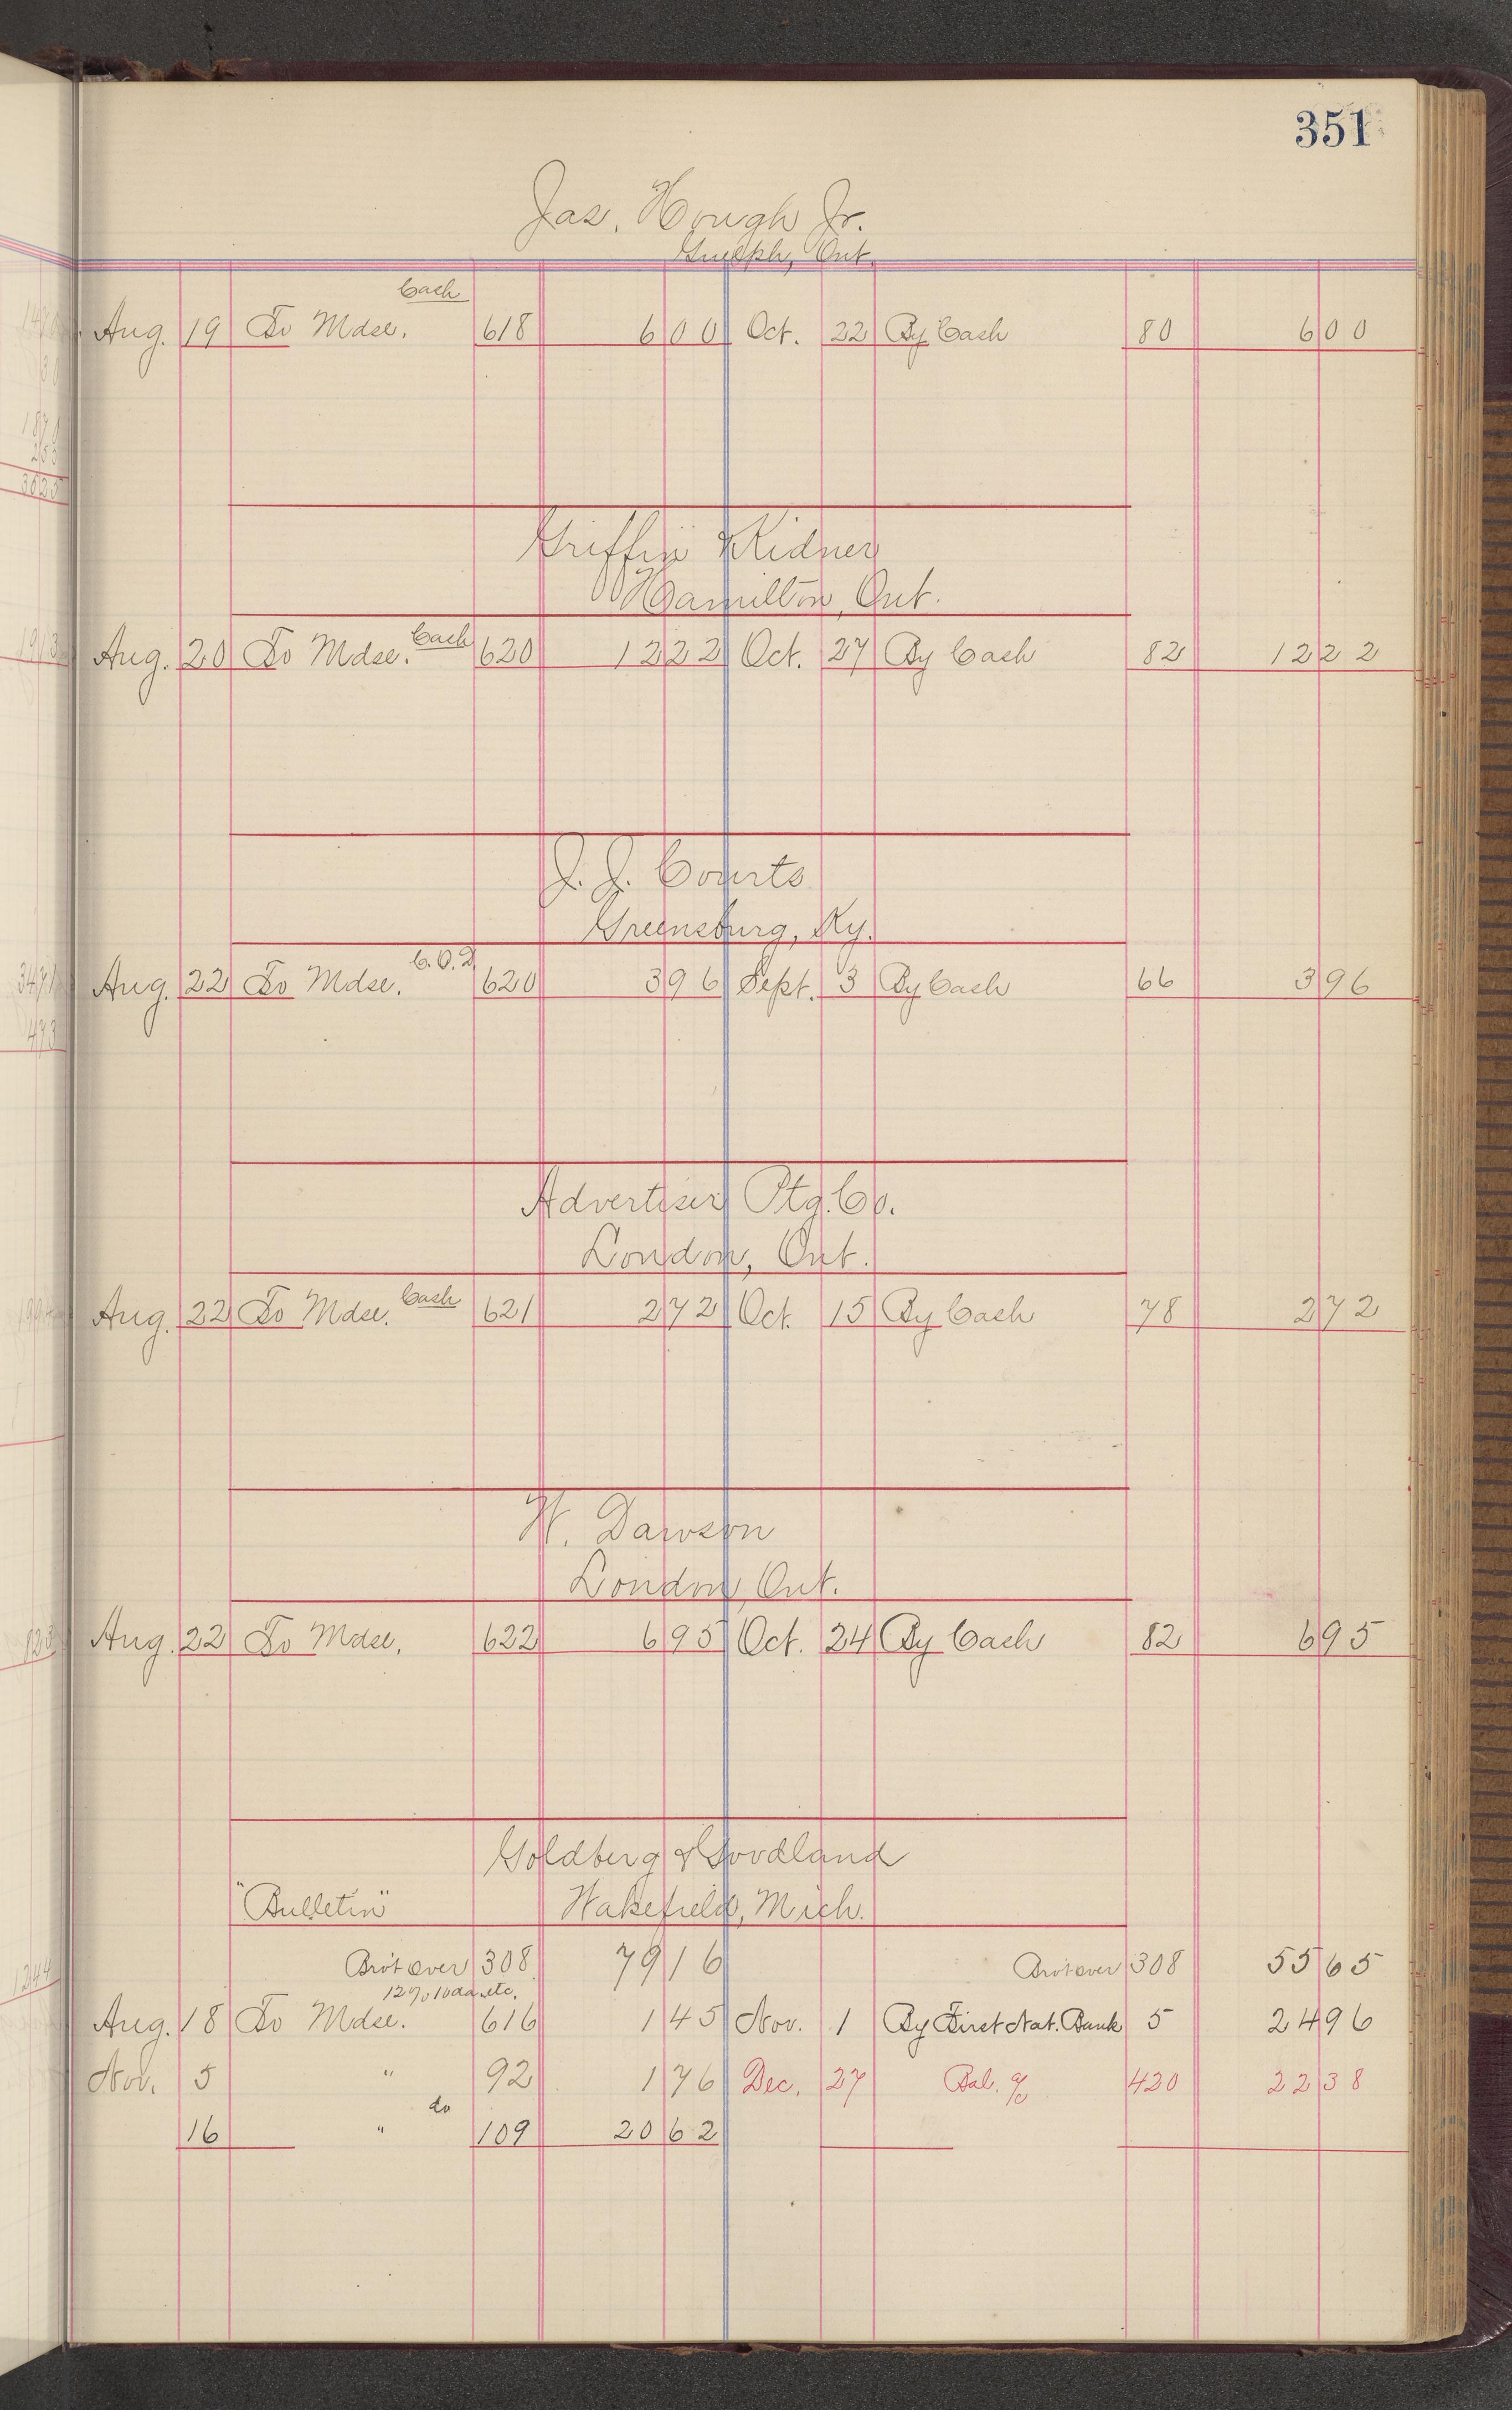 351
Jas. Hough Jr.
Guelph, Ont.
Cash
Aug. 19 To Mdse. 618 6 00 Oct. 22 By Cash 80 6 00
Griffin & Kidner
Hamilton, Ont.
Aug. 20 To Mdse. Cash 620 12 22 Oct. 27 By Cash 82 12 22
J. J. Courts
Greensburg, Ky.
Aug. 22 To Mdse. C.O.D. 620 3 96 Sept. 3 By Cash 66 3 96
Advertiser Ptg. Co.
London, Ont.
Aug. 22 To Mdse. Cash 621 2 72 Oct. 15 By Cash 78 2 72
W. Dawson
London, Ont.
Aug. 22 To Mdse. 622 6 95 Oct. 24 By Cash 82 6 95
Goldberg & Goodland
"Bulletin" Wakefield, Mich.
Bro't over 308 79 16 Bro't over 308 55 65
12% 10 da. etc.
Aug. 18 To Mdse. 616 1 45 Nov. 1 By First Nat. Bank 5 24 96
Nov. 5 " 92 1 76 Dec. 27 Bal. a/c 420 22 38
do
16 " 109 20 62